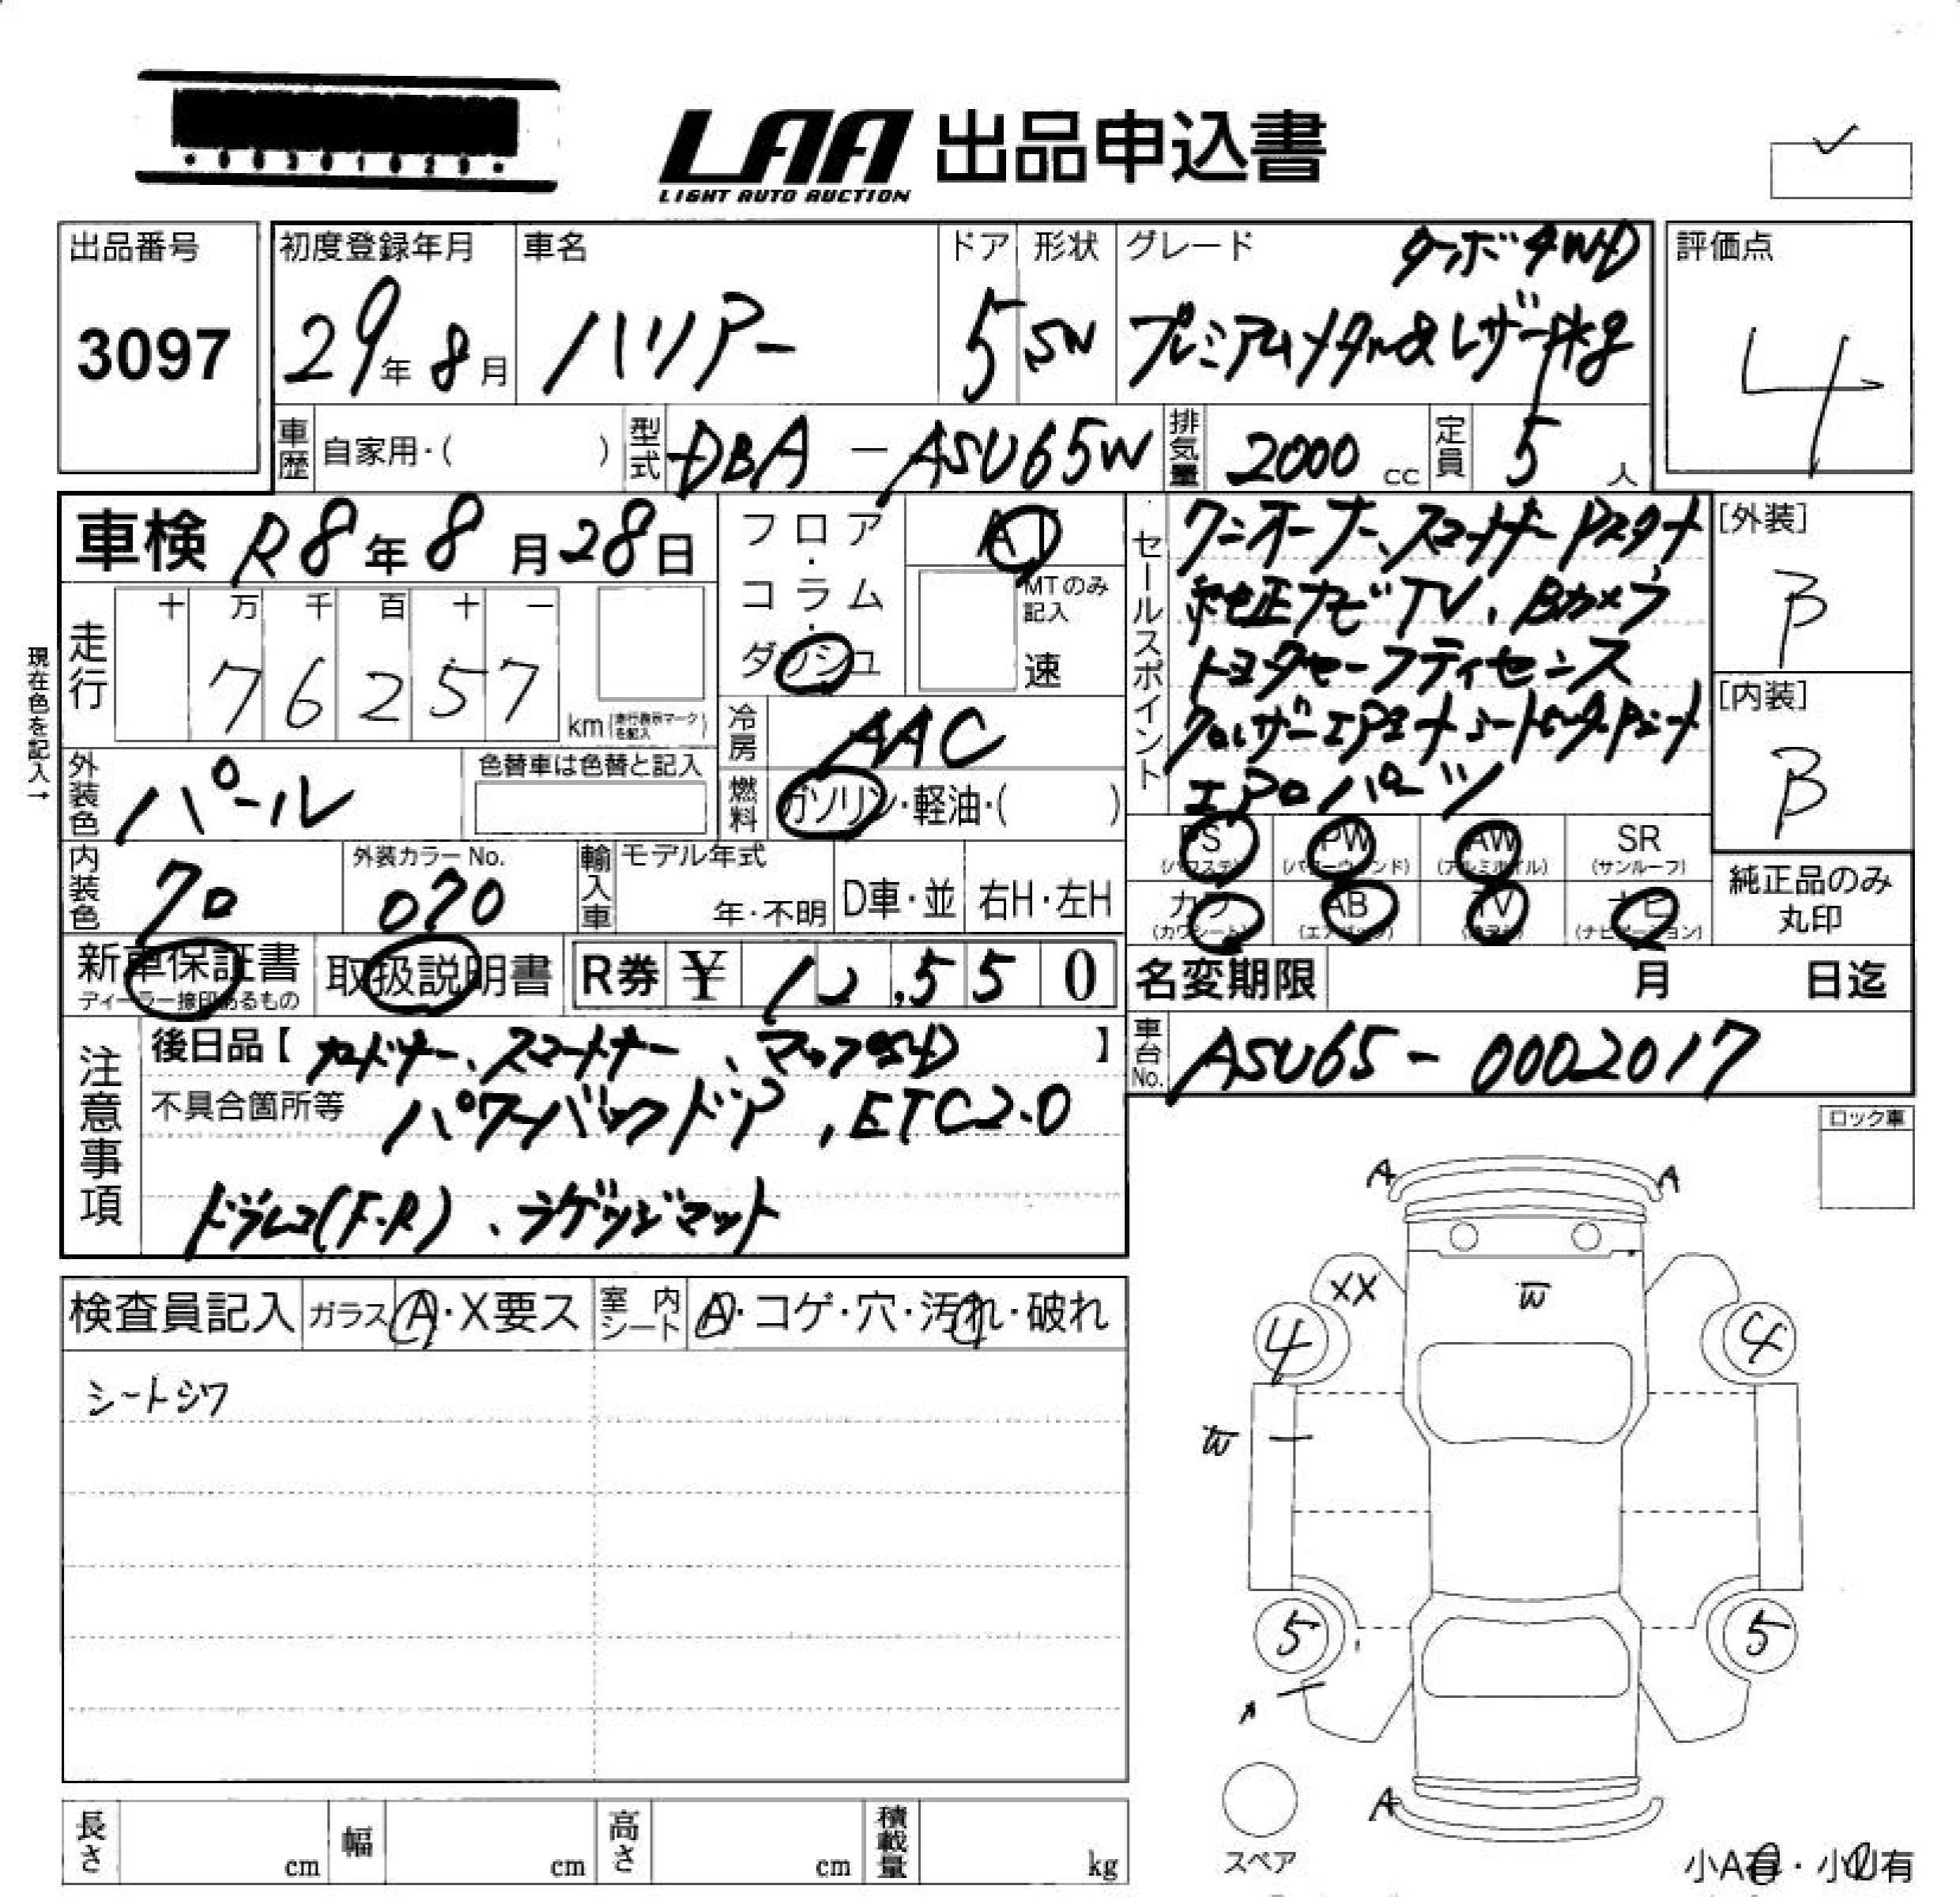 LAA 出品申込書
LIGHT AUTO AUCTION
出品番号
3097
初度登録年月
29年 8月
車名
ハリアー
ドア
5
形状
SW
グレード
ターボ4WD
プレミアムメタル&レザーP'kg
評価点
4
車歴
自家用・( )
型式
DBA - ASU65W
排気量
2000 cc
定員
5 人
車検 R8年8月28日
走行
十 万 千 百 十 一
7 6 2 5 7
km (走行表示マークを記入)
現在色を記入→
フロア・コラム・ダッシュ
AT
MTのみ記入
速
冷房
AAC
燃料
ガソリン・軽油・( )
外装色
パール
色替車は色替と記入
内装色
クロ
外装カラーNo.
070
輸入車
モデル年式
年・不明
D車・並
右H・左H
セールスポイント
ワンオーナー、スマートキー Pスタート
純正ナビTV、Bカメラ
トヨタセーフティセンス
クロレザーエアシートシートヒーターPシート
エアロパーツ
[外装]
B
[内装]
B
PS
(パワステ)
PW
(パワーウィンド)
AW
(アルミホイル)
SR
(サンルーフ)
カワ
(カワシート)
AB
(エアバッグ)
TV
(テレビ)
ナビ
(ナビゲーション)
純正品のみ丸印
新車保証書
ディーラー捺印あるもの
取扱説明書
R券 ¥ 12,550
名変期限 月 日迄
車台No.
ASU65-0002017
注意事項
後日品【カードキー、スマートキー、マップSD】
不具合箇所等 パワーバックドア, ETC2.0
ドラレコ(F・R)、ラゲッジマット
ロック車
検査員記入
ガラス A・X要ス
室内シート A・コゲ・穴・汚れ・破れ
シートシワ
A A
XX W
4 4
W
5 5
A
A
スペア
小A有・小U有
長さ cm
幅 cm
高さ cm
積載量 kg